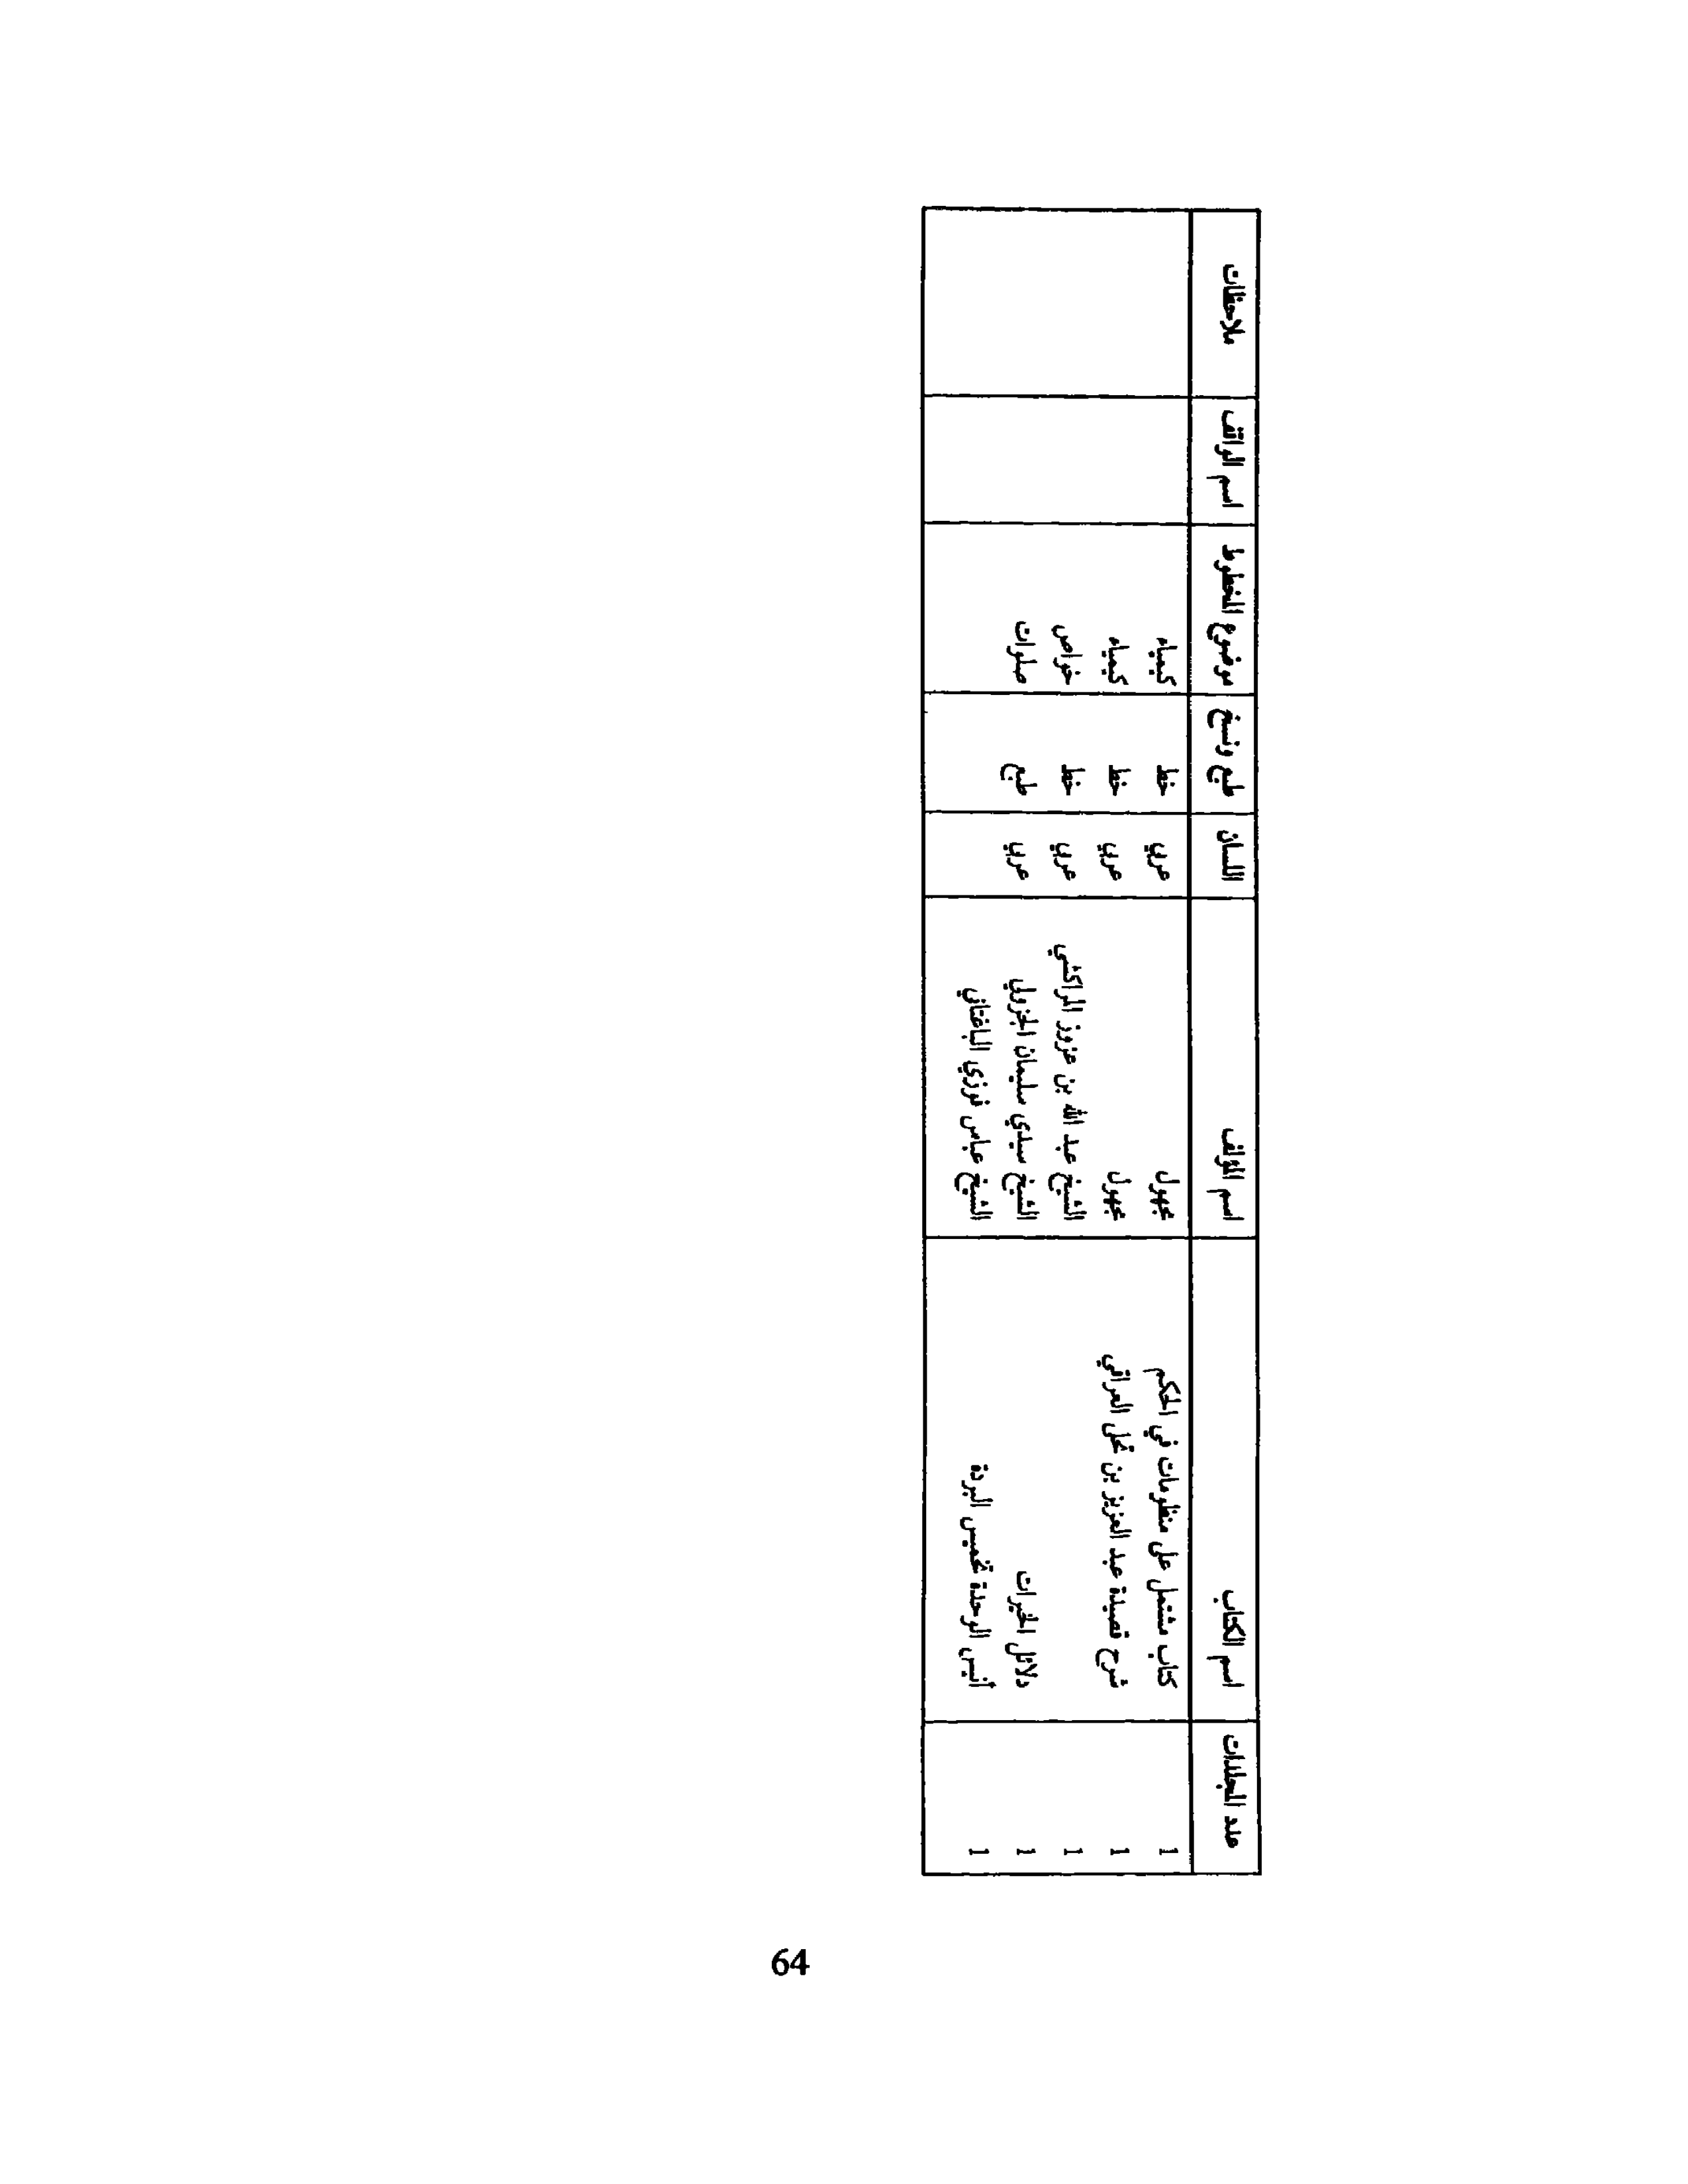 عدد المجلدات اسم الكتاب اسم المؤلف اللسان طبع ونسخ موضوع المخطوط اسم الواقف ملاحظات
1 كتاب مشتمل على منظومات في الحكم مجهول عربي خط كيمياء
1 شرح قصيدة عبد العزيز بن تحل العراقي مجهول عربي خط كيمياء
1 الشيخ عبد الله بن عزوز المراكشي عربي خط خواص
1 دلائل الخيرات الشيخ سيدي سليمان الجزولي عربي طبع صلوات
1 أنيس الوحدة تخميس البردة الشيخ عباس فوزي الباغتاني
64